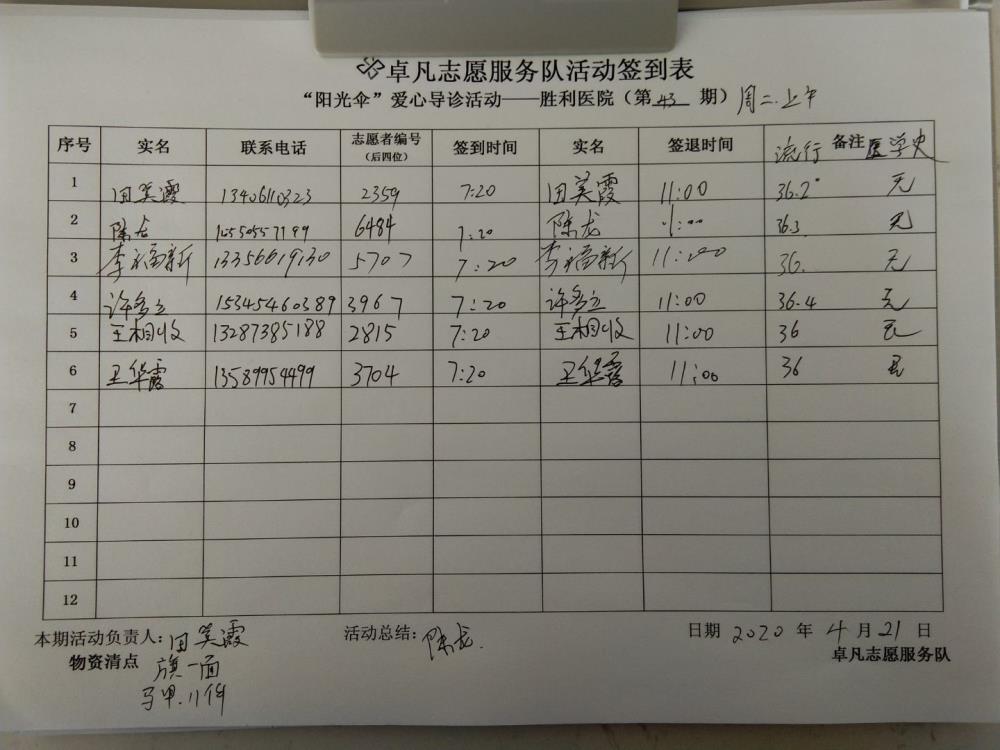 卓凡志愿服务队活动签到表
“阳光伞”爱心导诊活动——胜利医院（第 43 期）周二.上午
序号 实名 联系电话 志愿者编号（后四位） 签到时间 实名 签退时间 流行 备注 医学史
1 田美霞 13406110323 2359 7:20 田美霞 11:00 36.2° 无
2 陈龙 6484 7:20 陈龙 11:00 36.3 无
3 李福新 13356619130 5707 7:20 李福新 11:00 36. 无
4 许多立 15345460389 3967 7:20 许多立 11:00 36.4 无
5 王相收 13287385188 2815 7:20 王相收 11:00 36 无
6 卫华霞 13589954499 3704 7:20 卫华霞 11:00 36 无
7
8
9
10
11
12
本期活动负责人：田美霞 活动总结：陈龙. 日期 2020 年 4 月 21 日
物资清点 旗一面 卓凡志愿服务队
马甲.11件